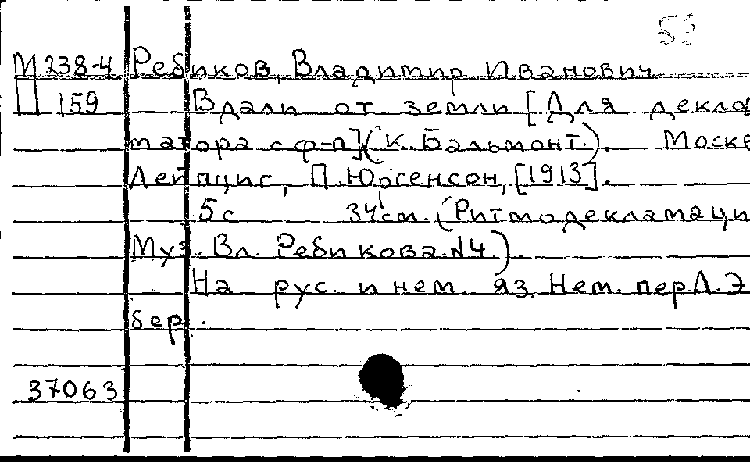 53
М 238-4 Ребиков, Владимир Иванович
П 159 Вдали от земли [Для декла
матора с ф-п] (К. Бальмонт.). Москв
Лейпциг, П. Юргенсон, [1913].
5 с 34 см. (Ритмодекламаци
Муз. Вл. Ребикова. №4).
На рус. и нем. яз. Нем. пер Л. Э
бер.
37063